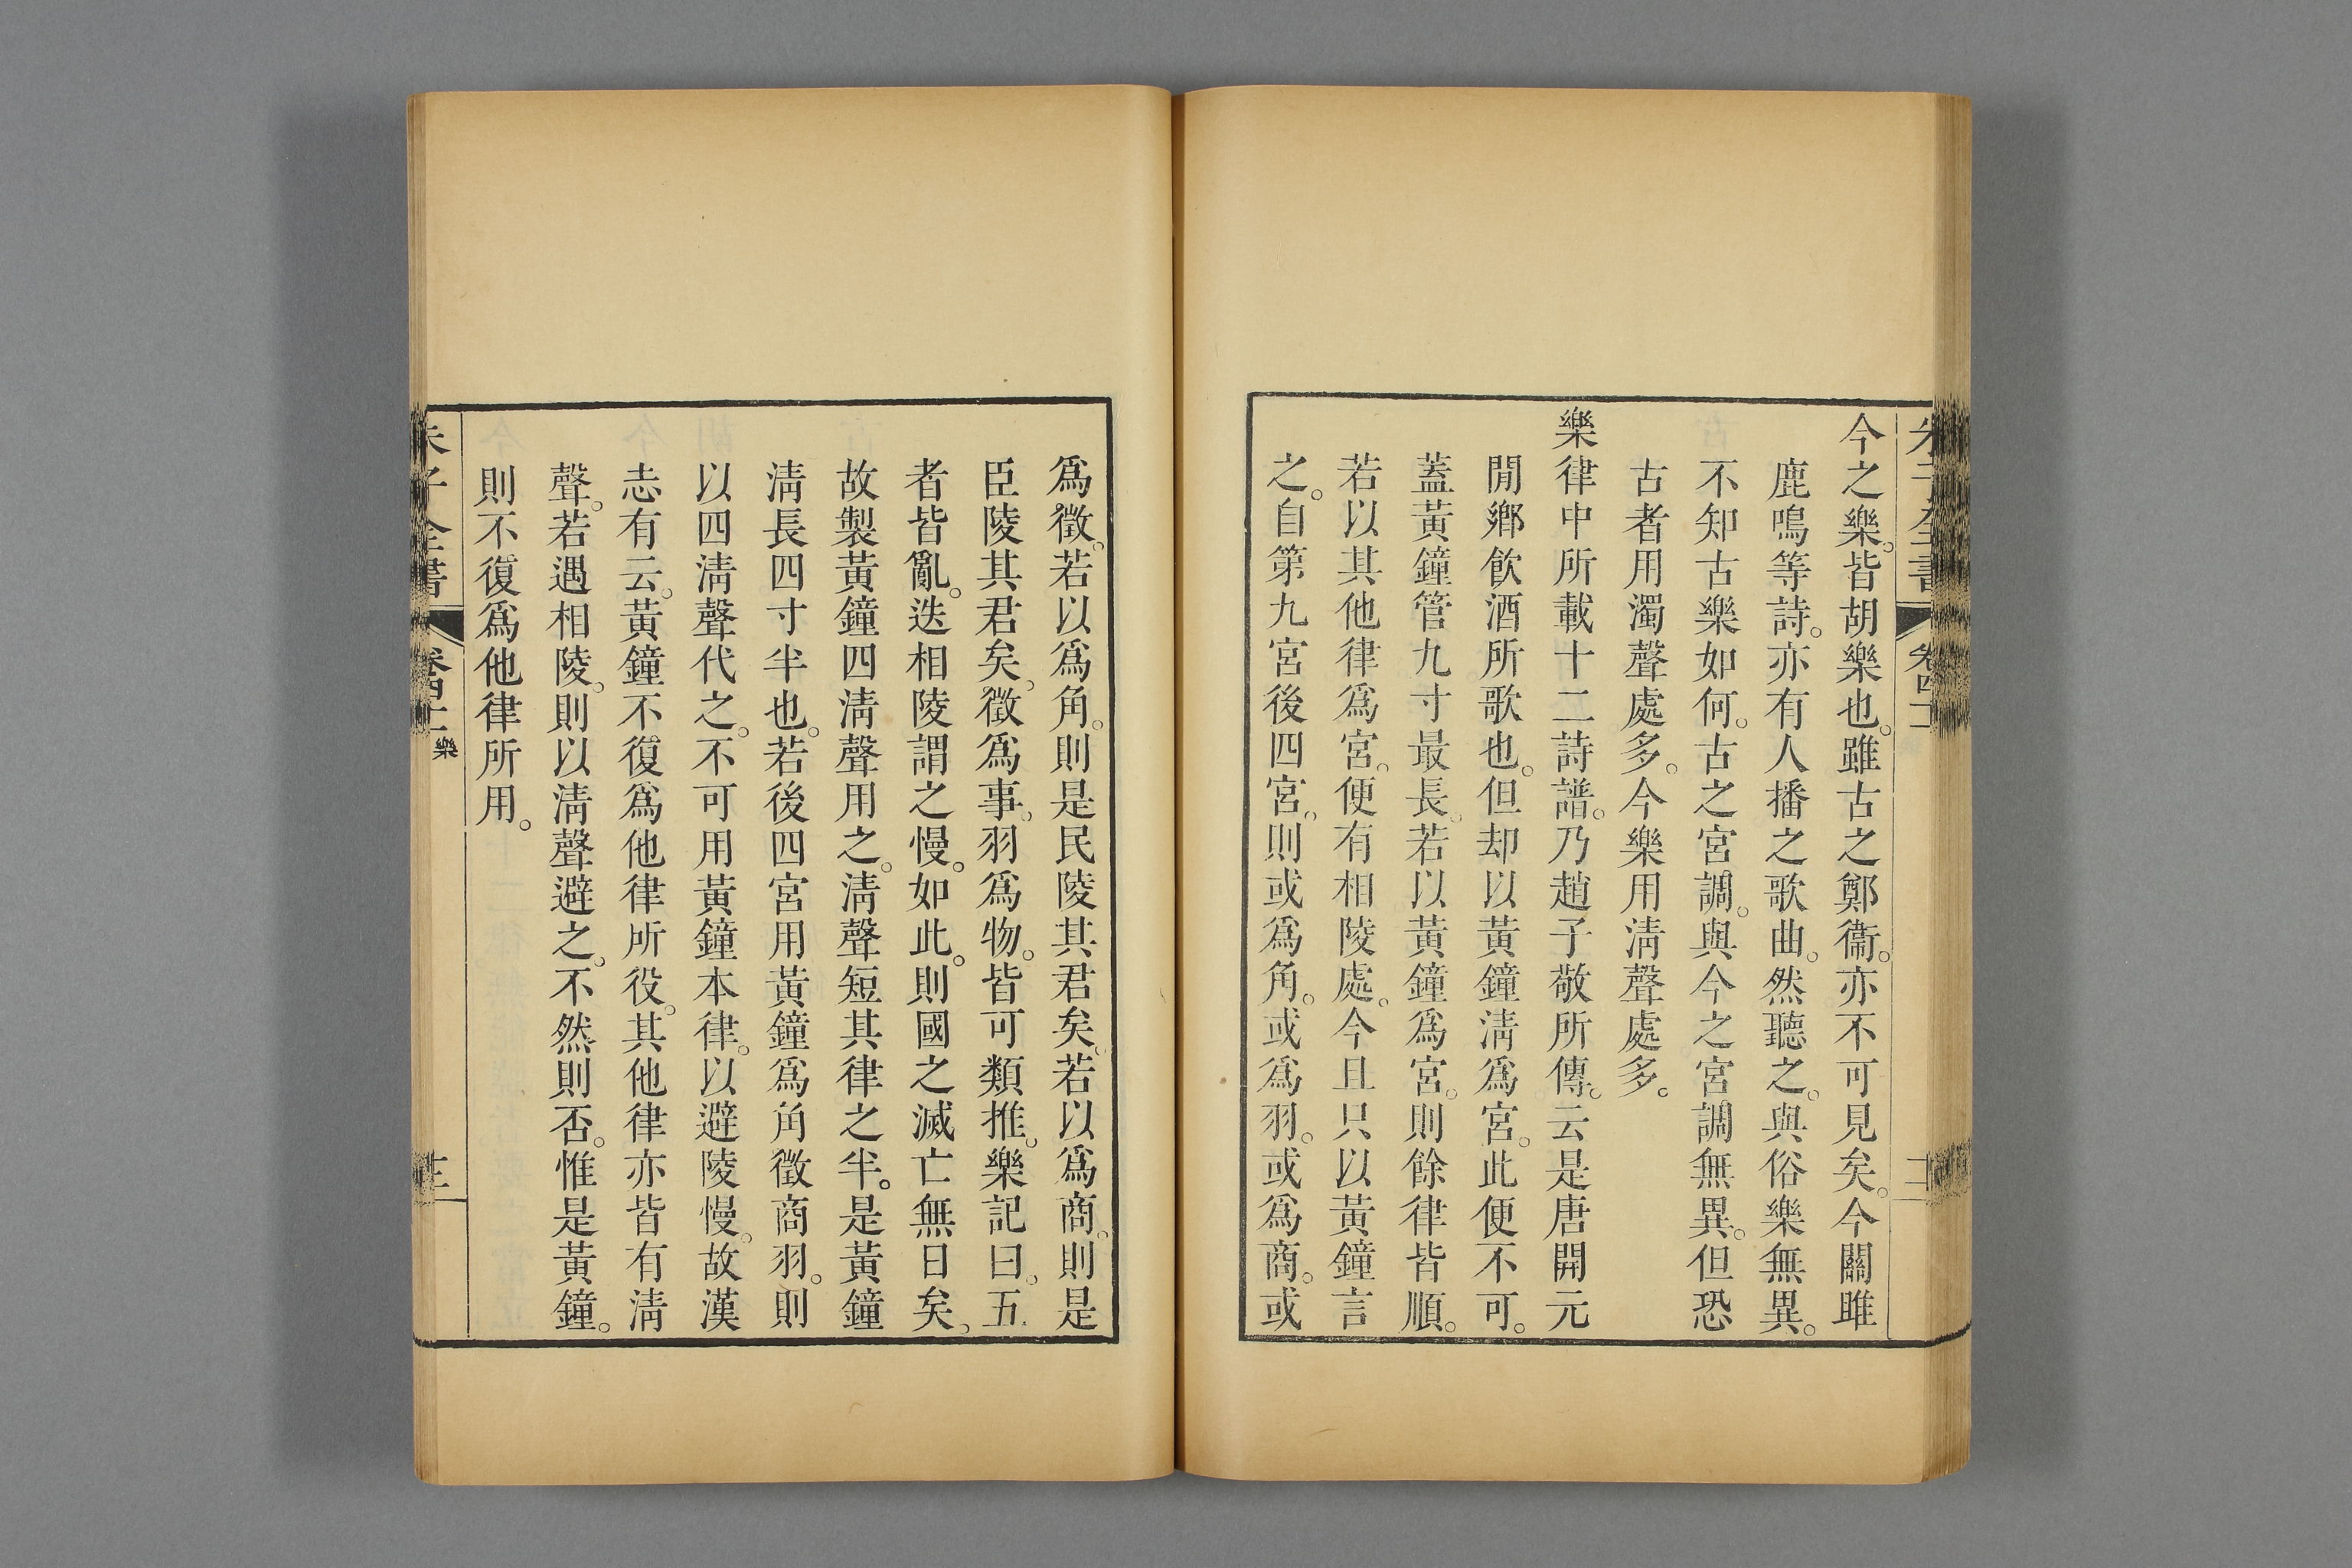 今之樂。皆胡樂也。雖古之鄭衞。亦不可見矣。今關雎
鹿鳴等詩。亦有人播之歌曲。然聽之。與俗樂無異。
不知古樂如何。古之宮調。與今之宮調無異。但恐
古者用濁聲處多。今樂用淸聲處多。
樂律中所載十二詩譜。乃趙子敬所傳。云是唐開元
閒鄕飮酒所歌也。但却以黃鐘淸爲宮。此便不可。
蓋黃鐘管九寸最長。若以黃鐘爲宮。則餘律皆順。
若以其他律爲宮。便有相陵處。今且只以黃鐘言
之。自第九宮後四宮。則或爲角。或爲羽。或爲商。或
爲徵。若以爲角。則是民陵其君矣。若以爲商。則是
臣陵其君矣。徵爲事。羽爲物。皆可類推。樂記曰。五
者皆亂。迭相陵謂之慢。如此。則國之滅亡無日矣。
故製黃鐘四淸聲用之。淸聲短其律之半。是黃鐘
淸長四寸半也。若後四宮用黃鐘爲角徵商羽。則
以四淸聲代之。不可用黃鐘本律。以避陵慢。故漢
志有云。黃鐘不復爲他律所役。其他律亦皆有淸
聲。若遇相陵。則以淸聲避之。不然則否。惟是黃鐘。
則不復爲他律所用。
朱子全書
卷四十一
樂